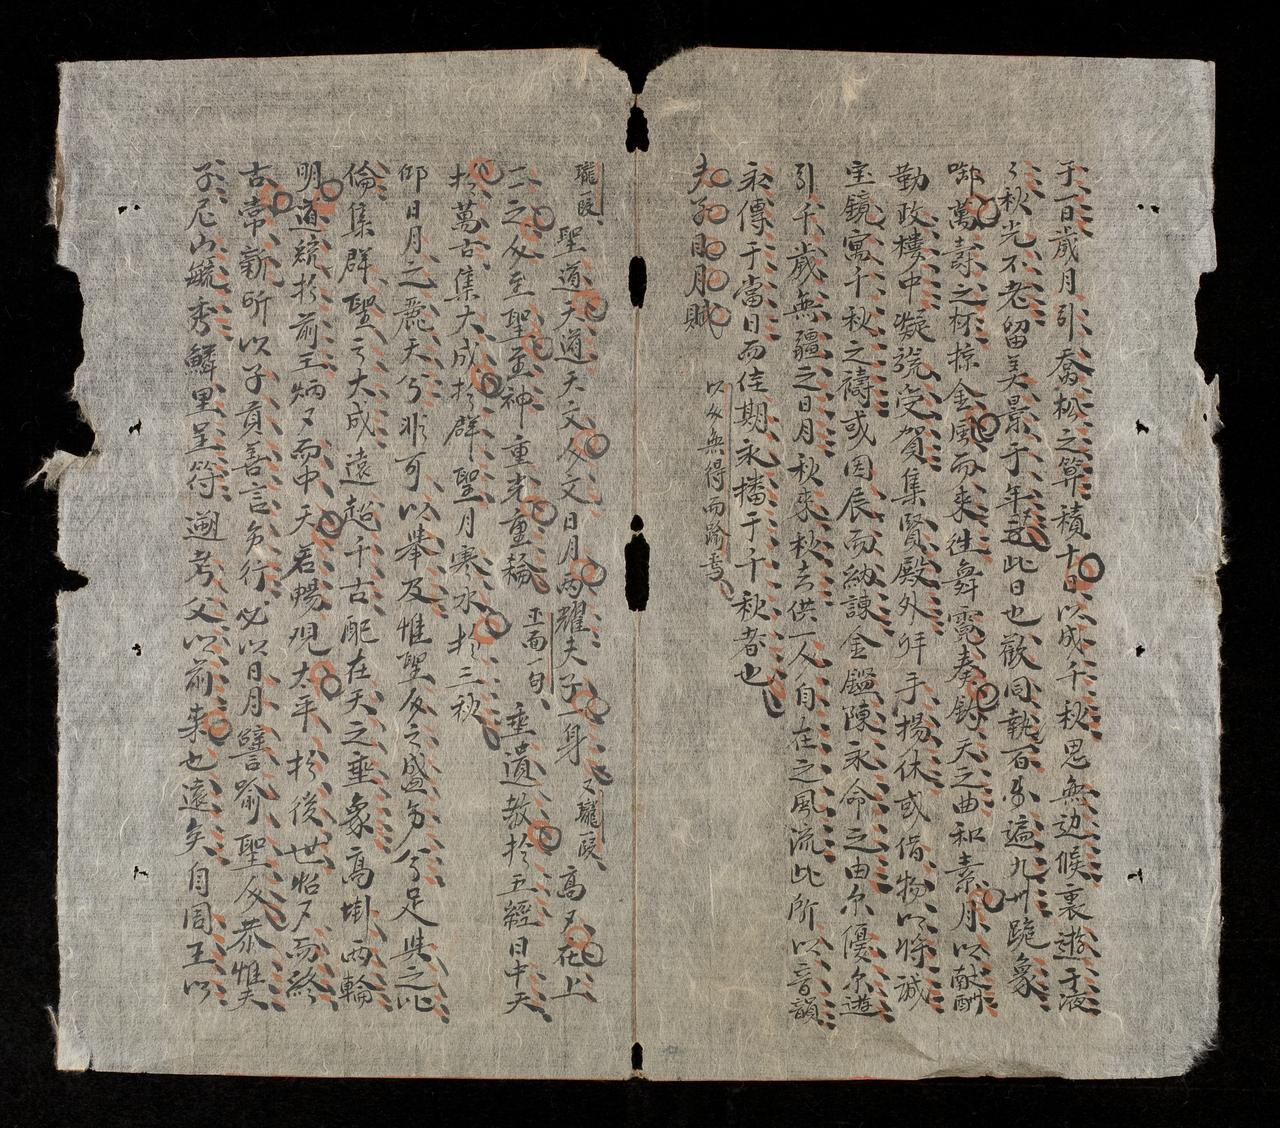 于一日歲月引喬松之算積十日以成千秋思無边候裏遊于液
々秋光不老留美景于年年此日也歡同執百南遍九州跪象
御萬壽之杯掠金風而來往舞霓奏鈞天之曲和素月以献酬
勤政樓中凝旒受賀集賢殿外拜手揚休或借物以将誠
宝鏡寓千秋之禱或因辰而納諫金鑑陳永命之由尔優尔遊
引千歲無疆之日月秋來秋去供一人自在之風流此所以音韻
永傳于當日而佳期永播于千秋者也
夫子日月賦 以及無得而踰焉
瓏段 聖道天道天文人文日月兩耀夫子一身 又瓏段 高々在上
二之人至聖至神重光重輪 正面一句 垂遺教於五經日中天
於萬古集大成於群聖月寒水於三秋
仰日月之麗天兮非可以舉及惟聖人之盛分兮足與之比
倫集群聖之大成遠超千古配在天之垂象高掛兩輪
明道統於前王炳々而中天若暢覌太平於後世怡々而終
古常新昕以子貢善言分行必以日月譬喻聖人恭惟夫
子尼山毓秀麟里呈符遡考父以前來也遠矣自周王以